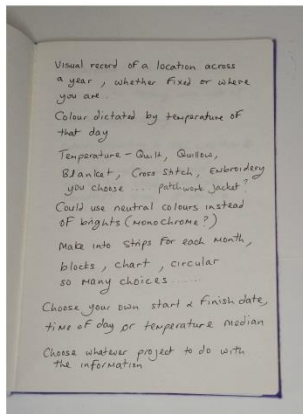 Visual record of a location across
a year, whether fixed or where
you are..
Colour dictated by temperature of
that day
Temperature - Quilt, Quillow,
Blanket, Cross Stitch, Embroidery
you choose .... patchwork jacket?
Could use neutral colours instead
of brights (monochrome?)
Make into strips for each month,
blocks, chart, circular
so many choices......
Choose your own start & finish date,
time of day or temperature median
Choose whatever project to do with
the information